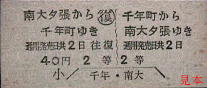 南大夕張から ㊢ 千年町から
千年町ゆき 南大夕張ゆき
通用発売日共2日 往復 通用発売日共2日
40円 2等 2等
小 千年・南大
見本